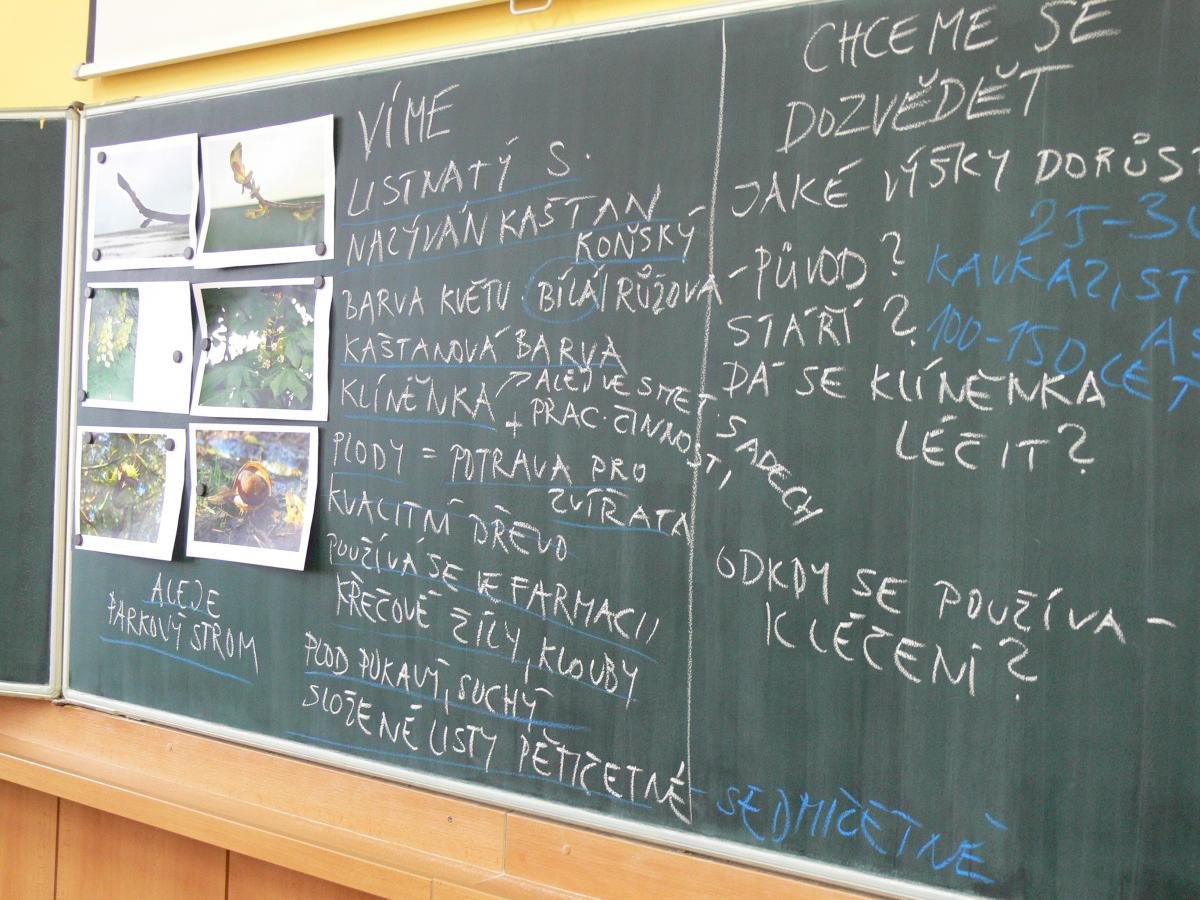 VÍME
LISTNATÝ S.
NAZÝVÁN KAŠTAN
KOŇSKÝ
BARVA KVĚTU BÍLÁ/RŮŽOVÁ
KAŠTANOVÁ BARVA
KLÍNĚNKA ALEJ VE SMET. SADECH
+ PRAC. ČINNOSTI
PLODY = POTRAVA PRO
ZVÍŘATA
KVALITNÍ DŘEVO
POUŽÍVÁ SE VE FARMACII
KŘEČOVÉ ŽÍLY, KLOUBY
PLOD PUKAVÝ, SUCHÝ
SLOŽENÉ LISTY PĚTIČETNÉ
ALEJE
PARKOVÝ STROM
CHCEME SE
DOZVĚDĚT
JAKÉ VÝŠKY DORŮST
25-30
- PŮVOD? KAVKAZ, ST
AS
STÁŘÍ? 100-150 LET
DÁ SE KLÍNĚNKA
LÉČIT?
ODKDY SE POUŽÍVÁ -
K LÉČENÍ?
- SEDMIČETNÉ